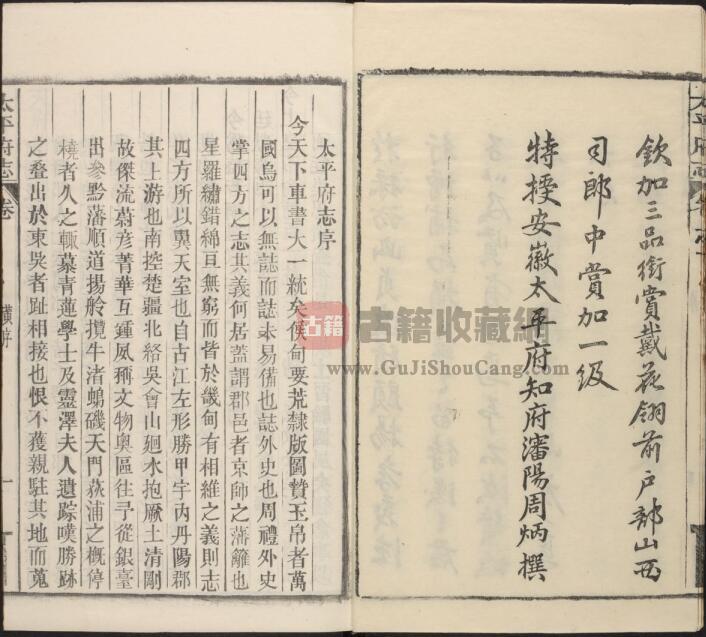 欽加三品銜賞戴花翎前戶部山西
司郎中賞加一級
特授安徽太平府知府瀋陽周炳撰
太平府志
太平府志序
今天下車書大一統矣侯甸要荒隸版圖贊玉帛者萬
國烏可以無誌而誌未易備也誌外史也周禮外史
掌四方之志其義何居蓋謂郡邑者京師之藩籬也
星羅繡錯綿亘無窮而皆於畿甸有相維之義則志
四方所以翼天室也自古江左形勝甲宇內丹陽郡
其上游也南控楚疆北絡吳會山廻水抱厥土清剛
故傑流蔚彥菁華互鍾夙稱文物奧區往予從銀臺
出參黔藩順道揚舲攬牛渚蟂磯天門荻浦之概停
橈者久之輒慕青蓮學士及靈澤夫人遺踪嘆勝跡
之疊出於東吳者趾相接也恨不獲親駐其地而蒐
太平府志
卷
序
一
古籍
古籍收藏網
www.GuJiShouCang.com